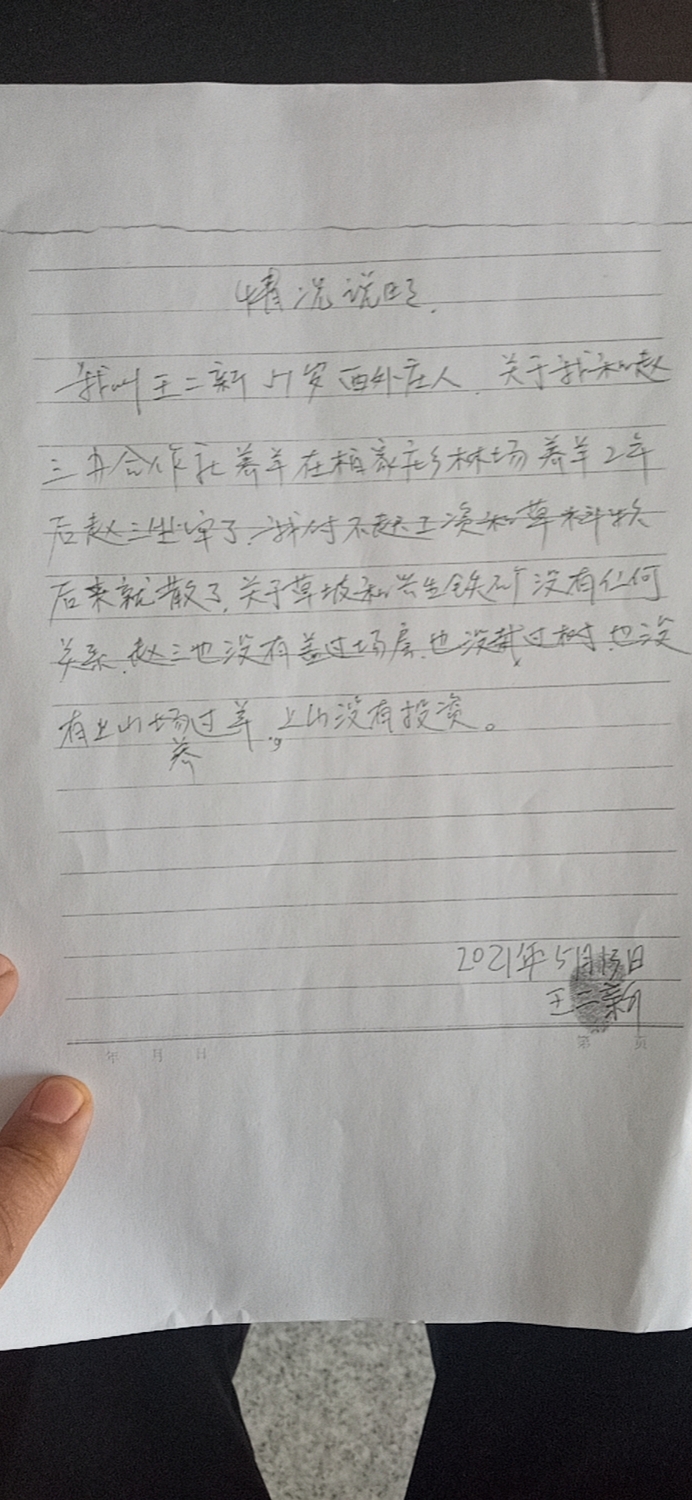 情况说明.
我叫王二新 51岁 西外庄人. 关于我和赵
三办合作社养羊在柏家庄乡林场养羊2年
后赵三坐牢了.我付不起工资和草料款
后来就散了.关于草坡和 生铁矿没有任何
关系.赵三也没有盖过场房.也没栽过树.也没
有上山场过羊,上山没有投资。
养
2021年5月13日
王二新
年 月 日 第 页